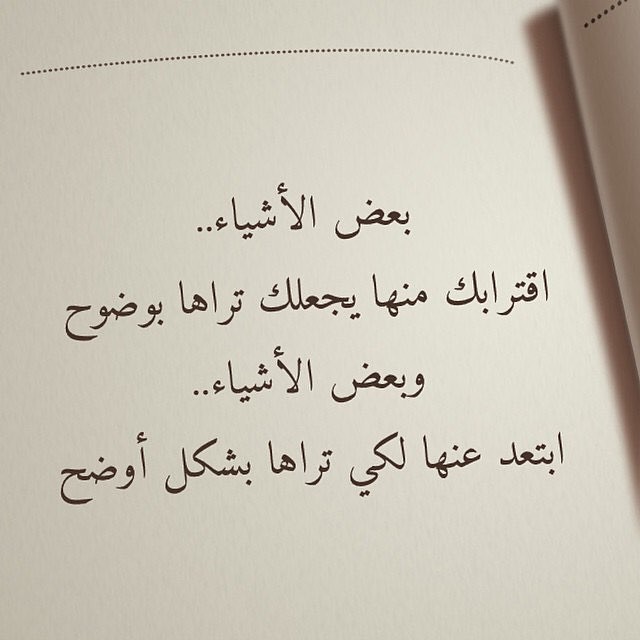 بعض الأشياء..
اقترابك منها يجعلك تراها بوضوح
وبعض الأشياء..
ابتعد عنها لكي تراها بشكل أوضح